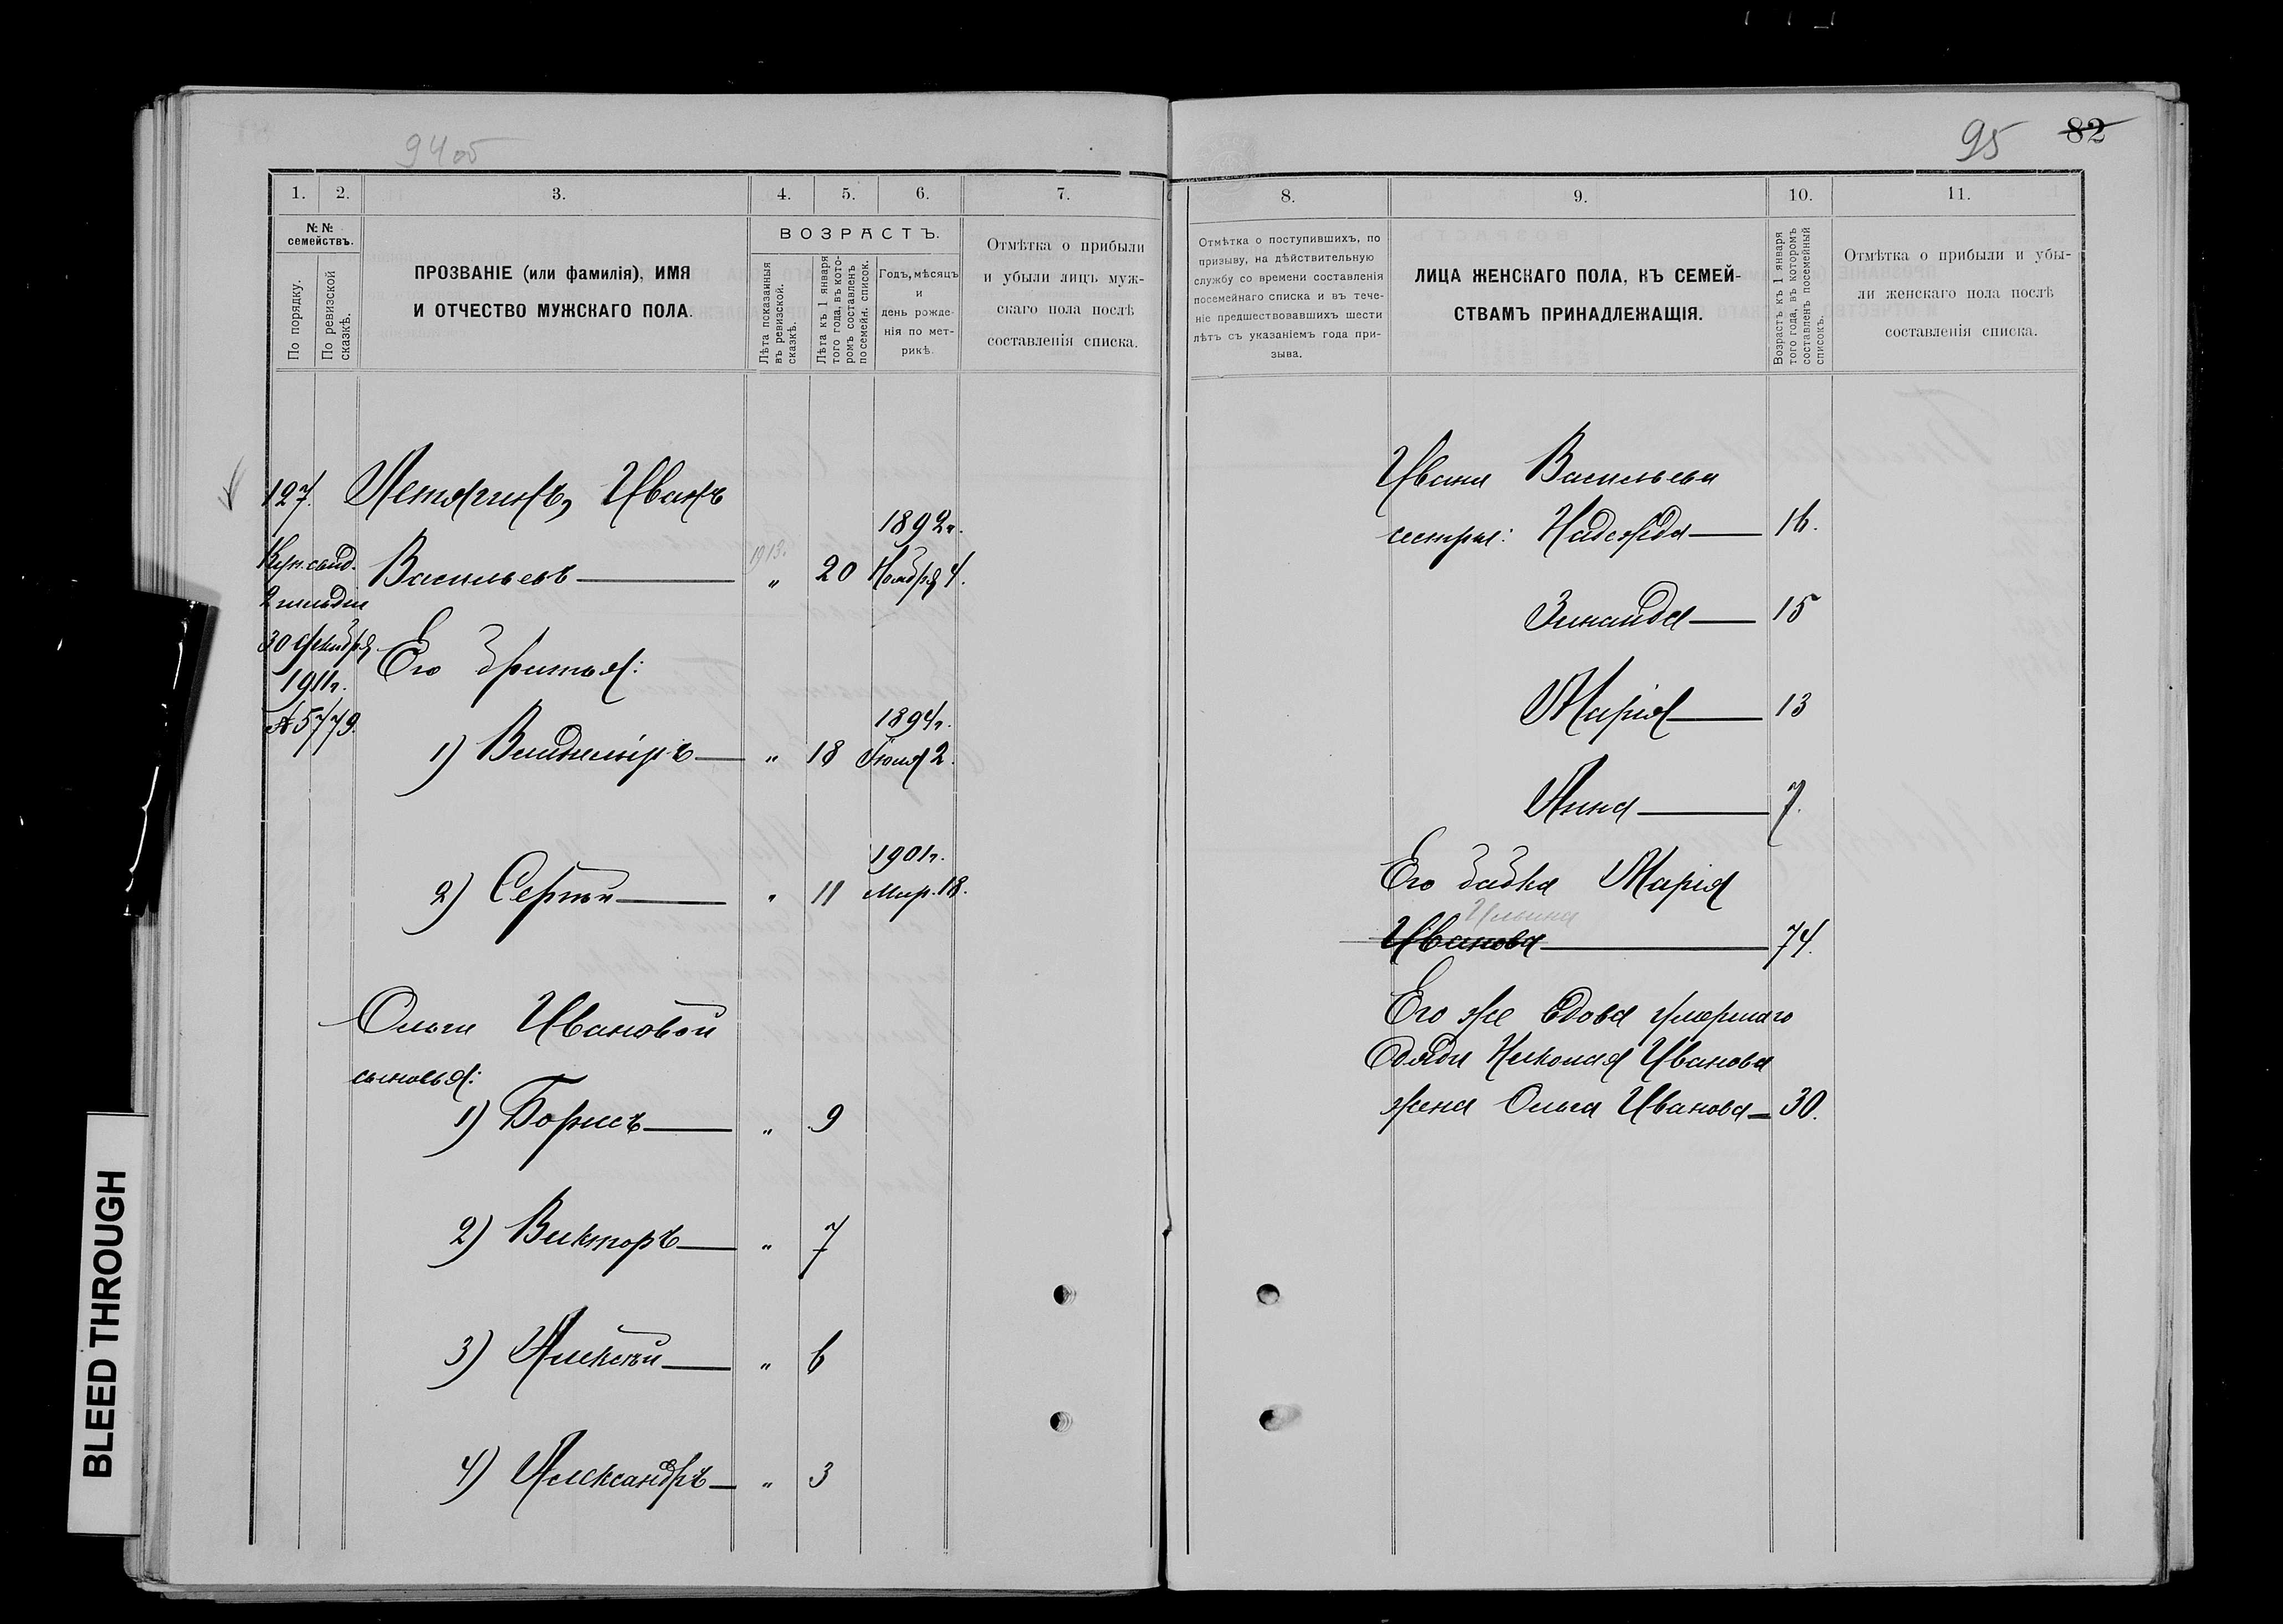 94 об
95 82
1. 2. 3. 4. 5. 6. 7.
№ №
семействъ.
По порядку.
По ревизской
сказкѣ.
ПРОЗВАНІЕ (или фамилія), ИМЯ
И ОТЧЕСТВО МУЖСКАГО ПОЛА.
ВОЗРАСТЪ.
Лѣта показанныя
въ ревизской.
сказкѣ.
Лѣта къ 1 января
того года, въ кото-
ромъ составленъ
посемейн. список.
Годъ, мѣсяцъ
и
день рожде-
нія по мет-
рикѣ.
Отмѣтка о прибыли
и убыли лицъ муж-
скаго пола послѣ
составленія списка.
127. Летягинъ, Иванъ
1892 г.
1913.
Васильевъ — " 20 Ноября 4.
Куп. свид.
2 гильдіи
30 Декабря
1911 г.
№ 5779.
Его братья:
1894 г.
1) Владиміръ — " 18 Іюля 2.
1901 г.
2) Сергѣй — " 11 Мар. 18.
Ольги Ивановой
сыновья:
1) Борисъ — " 9
2) Викторъ — " 7
3) Алексѣй — " 6
4) Александръ — " 3
8. 9. 10. 11.
Отмѣтка о поступившихъ, по
призыву, на дѣйствительную
службу со времени составленія
посемейнаго списка и въ тече-
ніе предшествовавшихъ шести
лѣтъ съ указаніемъ года при-
зыва.
ЛИЦА ЖЕНСКАГО ПОЛА, КЪ СЕМЕЙ-
СТВАМЪ ПРИНАДЛЕЖАЩІЯ.
Возрастъ къ 1 января
того года, въ которомъ
составленъ посемейный
списокъ.
Отмѣтка о прибыли и убы-
ли женскаго пола послѣ
составленія списка.
Ивана Васильева
сестры: Надежда — 16.
Зинаида — 15
Марія — 13
Анна — 7.
Его бабка Марія
Ильина
Иванова — 74.
Его же вдова умершаго
дяди Николая Иванова
жена Ольга Иванова — 30.
BLEED THROUGH